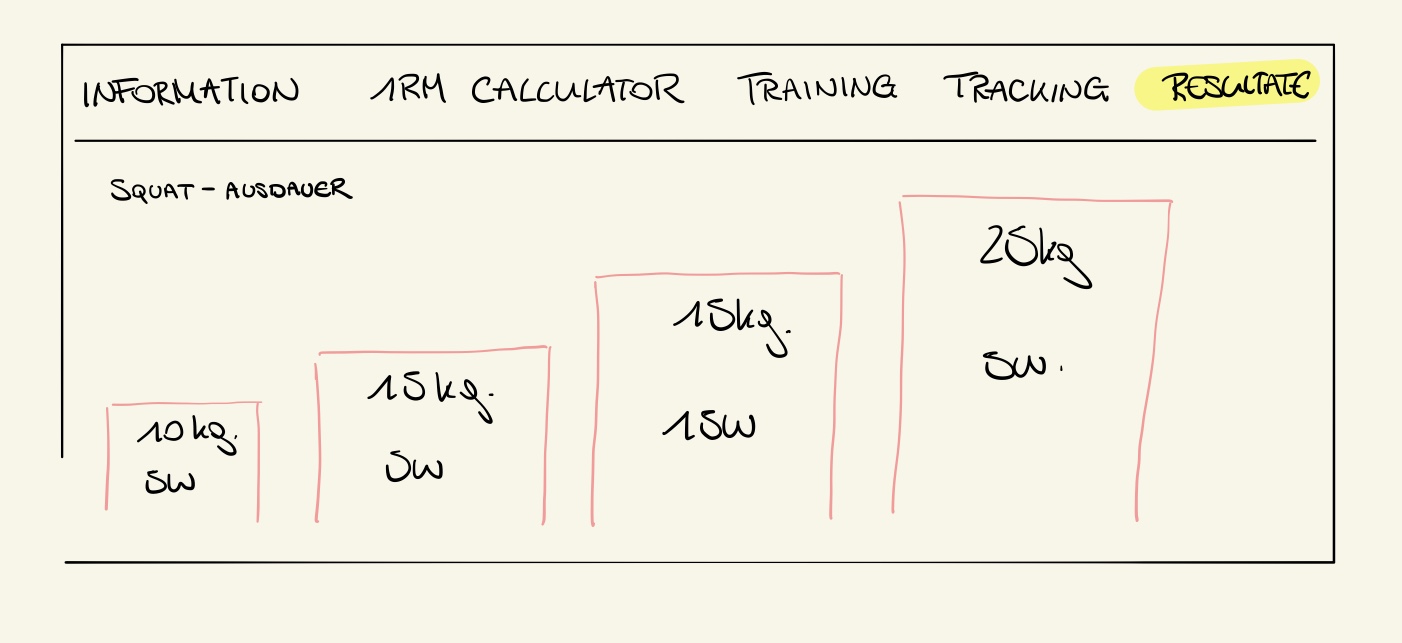 INFORMATION 1RM CALCULATOR TRAINING TRACKING RESULTATE
SQUAT - AUSDAUER
10kg.
5W
15kg.
5W
15kg.
15W
25kg
5W.